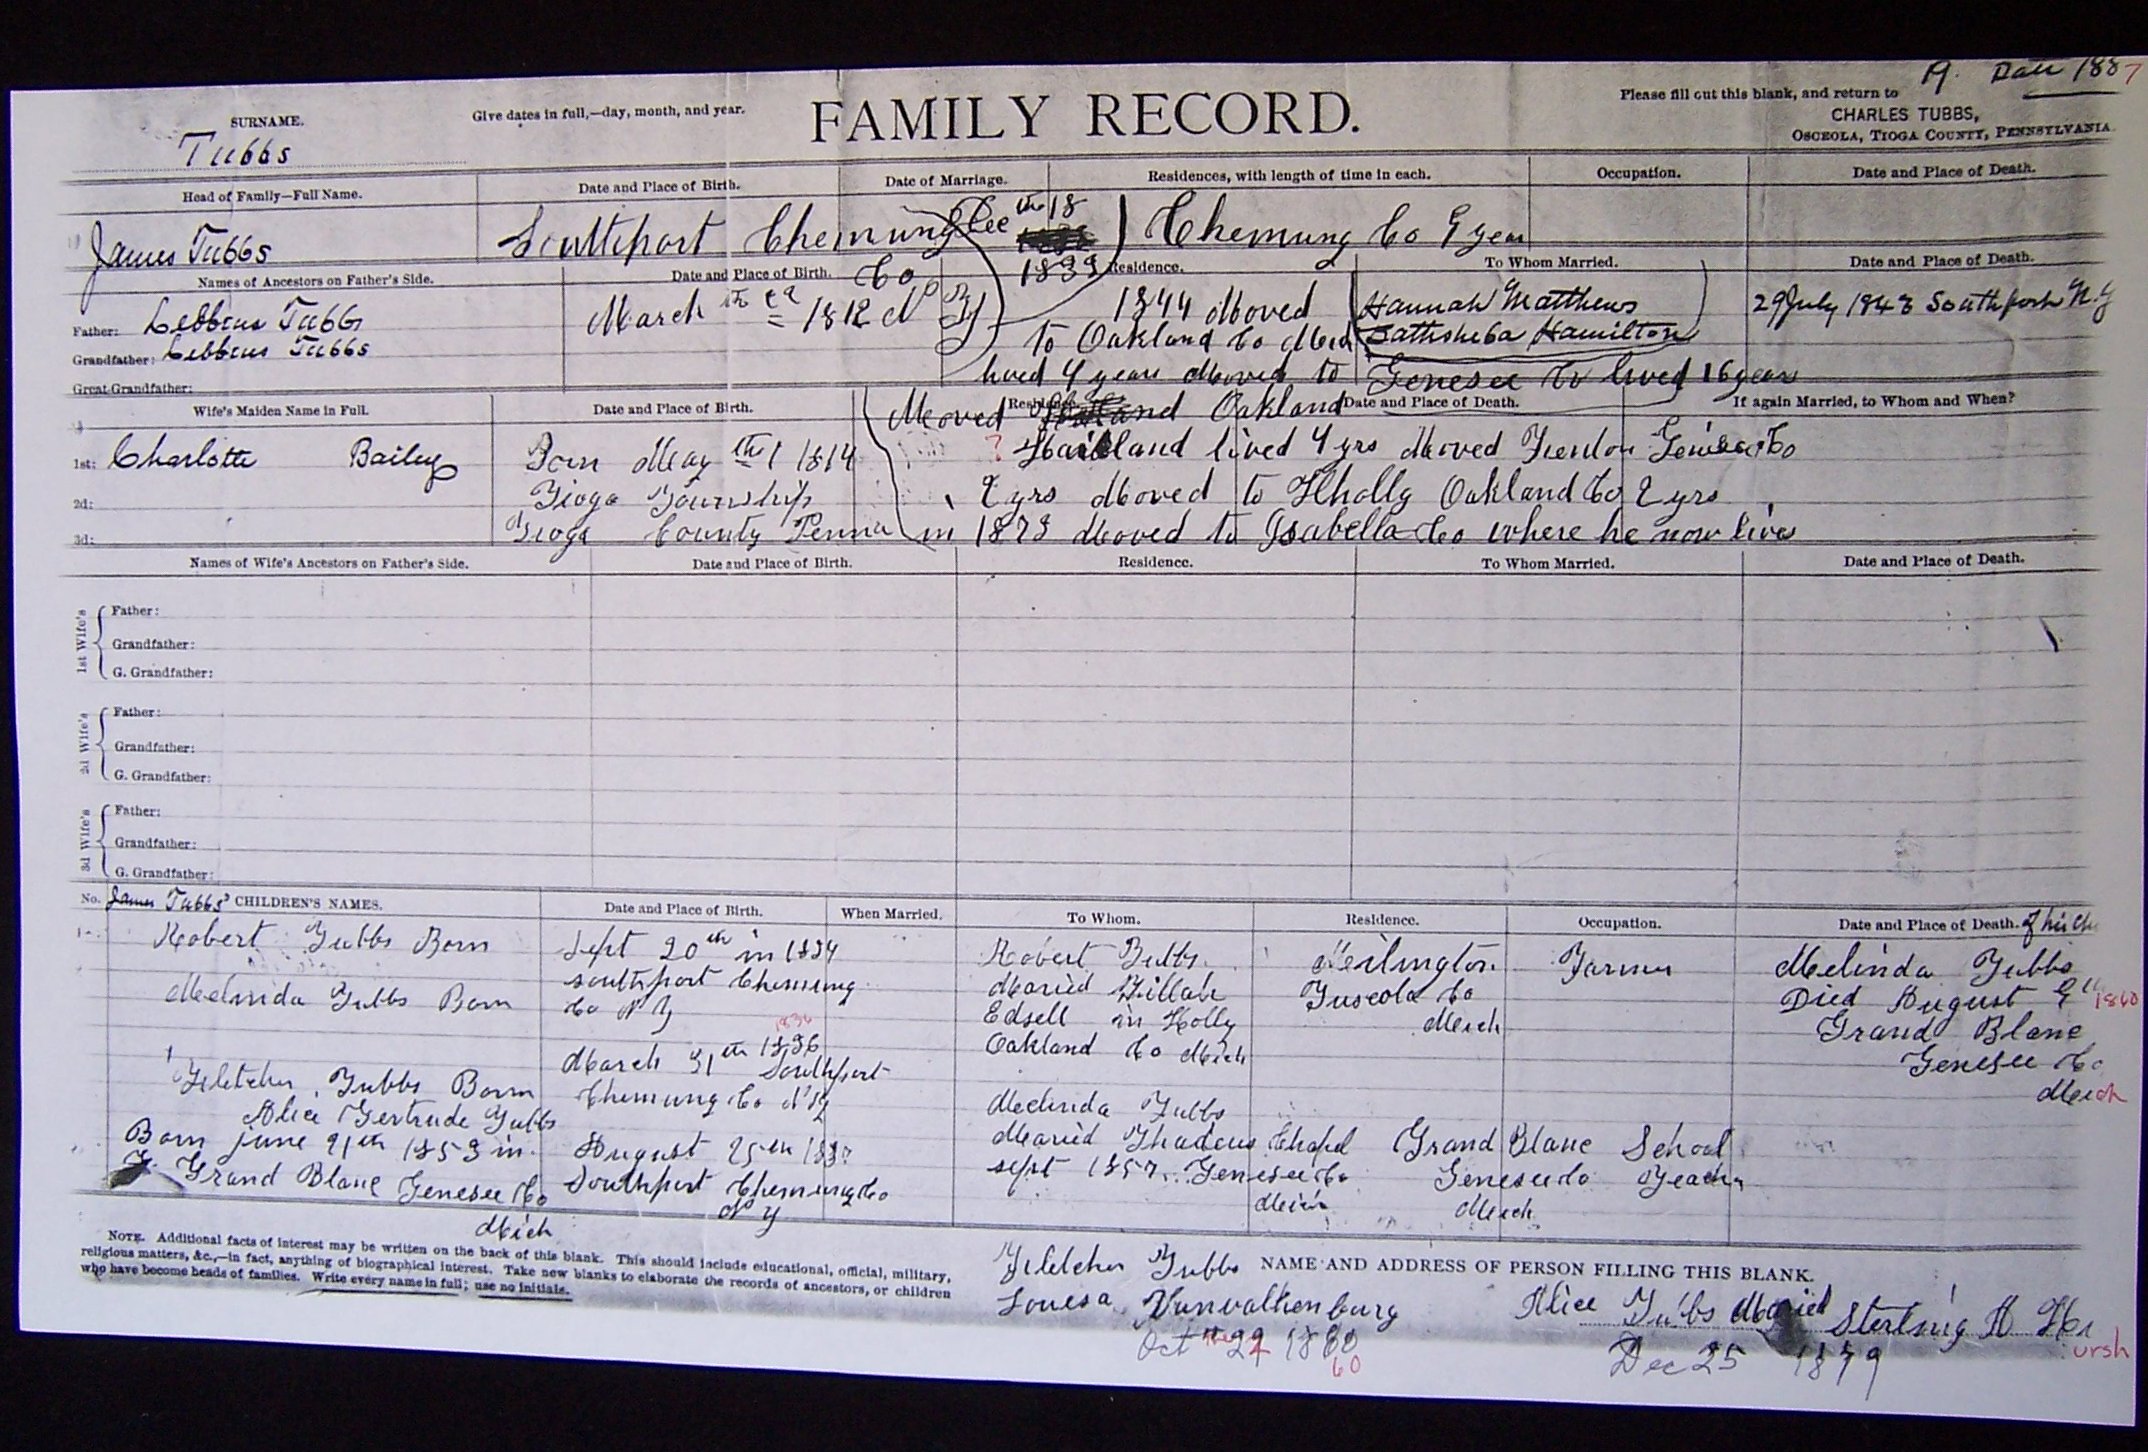 19. Date 1887
Please fill out this blank, and return to
CHARLES TUBBS,
OSCEOLA, TIOGA COUNTY, PENNSYLVANIA.
Give dates in full,—day, month, and year.
FAMILY RECORD.
SURNAME.
Tubbs
Head of Family—Full Name.
Date and Place of Birth.
Date of Marriage.
Residences, with length of time in each.
Occupation.
Date and Place of Death.
James Tubbs
Southport Chemung
Co
Dec th 18
1833
Chemung Co 9 year
Names of Ancestors on Father's Side.
Date and Place of Birth.
Residence.
To Whom Married.
Date and Place of Death.
Father: Lebbeus Tubbs
March 1812 N Y
1844 Moved
Hannah Matthews
29 July 1848 Southport N.Y
Grandfather: Lebbeus Tubbs
to Oakland Co Mich
Bathsheba Hamilton
Great-Grandfather:
lived 4 years Moved to Genesee Co lived 16 years
Wife's Maiden Name in Full.
Date and Place of Birth.
Residence.
Date and Place of Death.
If again Married, to Whom and When?
Moved Oakland
1st: Charlotte Bailey
Born May th 1 1814
? lived 4 yrs Moved Fenton Genesee Co
2d:
Tioga Township
2 yrs Moved to Hholly Oakland Co 2 yrs
3d:
Tioga County Penna
in 1873 Moved to Isabella Co where he now lives
Names of Wife's Ancestors on Father's Side.
Date and Place of Birth.
Residence.
To Whom Married.
Date and Place of Death.
1st Wife's
Father:
Grandfather:
G. Grandfather:
2d Wife's
Father:
Grandfather:
G. Grandfather:
3d Wife's
Father:
Grandfather:
G. Grandfather:
No.
James Tubbs' CHILDREN'S NAMES.
Date and Place of Birth.
When Married.
To Whom.
Residence.
Occupation.
Date and Place of Death. of his Ch
1
Robert Tubbs Born
Sept 20th in 1834
southport Chemung
Co N Y
Robert Tubbs
Maried Zillah
Edsell in Holly
Oakland Co Mich
Tuscola Co
Mich
Farmer
Melinda Tubbs
Died August 1860
Grand Blanc
Genesee Co
Mich
Melinda Tubbs Born
1836
March 31th 1836
Southport
Chemung Co N Y
Melinda Tubbs
Maried Thadeus Chapel
sept 1857 Genesee Co
Mich
Grand Blanc
Genesee Co
Mich
School
Teacher
Fletcher Tubbs Born
August 25th
Southport Chemung Co
N Y
Alice Gertrude Tubbs
Born june 21th 1853 in
Grand Blanc Genesee Co
Mich
NOTE. Additional facts of interest may be written on the back of this blank. This should include educational, official, military,
religious matters, &c.,—in fact, anything of biographical interest. Take new blanks to elaborate the records of ancestors, or children
who have become heads of families. Write every name in full; use no initials.
Fletcher Tubbs
Louesa Vanvalkenburg
Oct the 22 1860
60
NAME AND ADDRESS OF PERSON FILLING THIS BLANK.
Alice Tubbs Maried Sterling H
ursh
Dec 25 1879